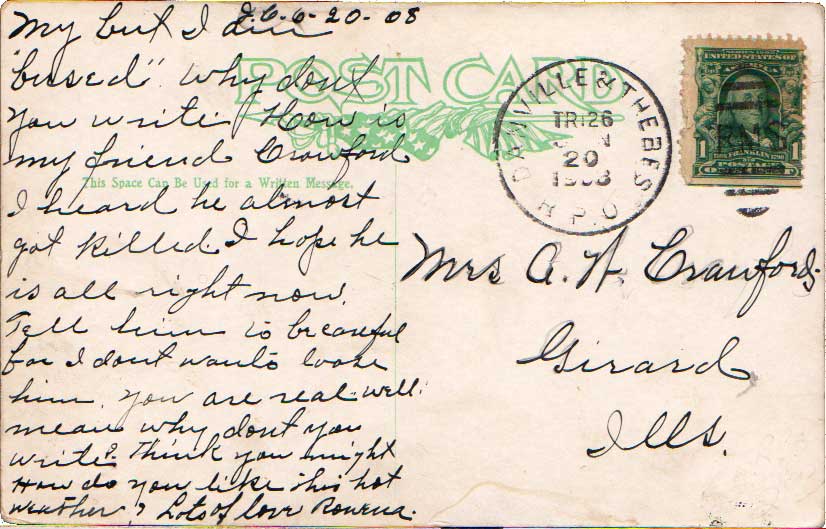 6-20-08
My but I am
"bused". Why dont
you write. How is
my friend Crawford
I heard he almost
got killed. I hope he
is all right now.
Tell him to be careful
for I dont want to loose
him. You are real well.
mean why dont you
write? Think you might
How do you like this hot
weather? Lots of love Rowena.
POST CARD
This Space Can Be Used for a Written Message.
DANVILLE & THEBES
TR. 26
20
1908
R.P.O.
RMS
UNITED STATES OF
1 1
POSTAGE
Mrs A. W Crawford,
Girard
Ills.